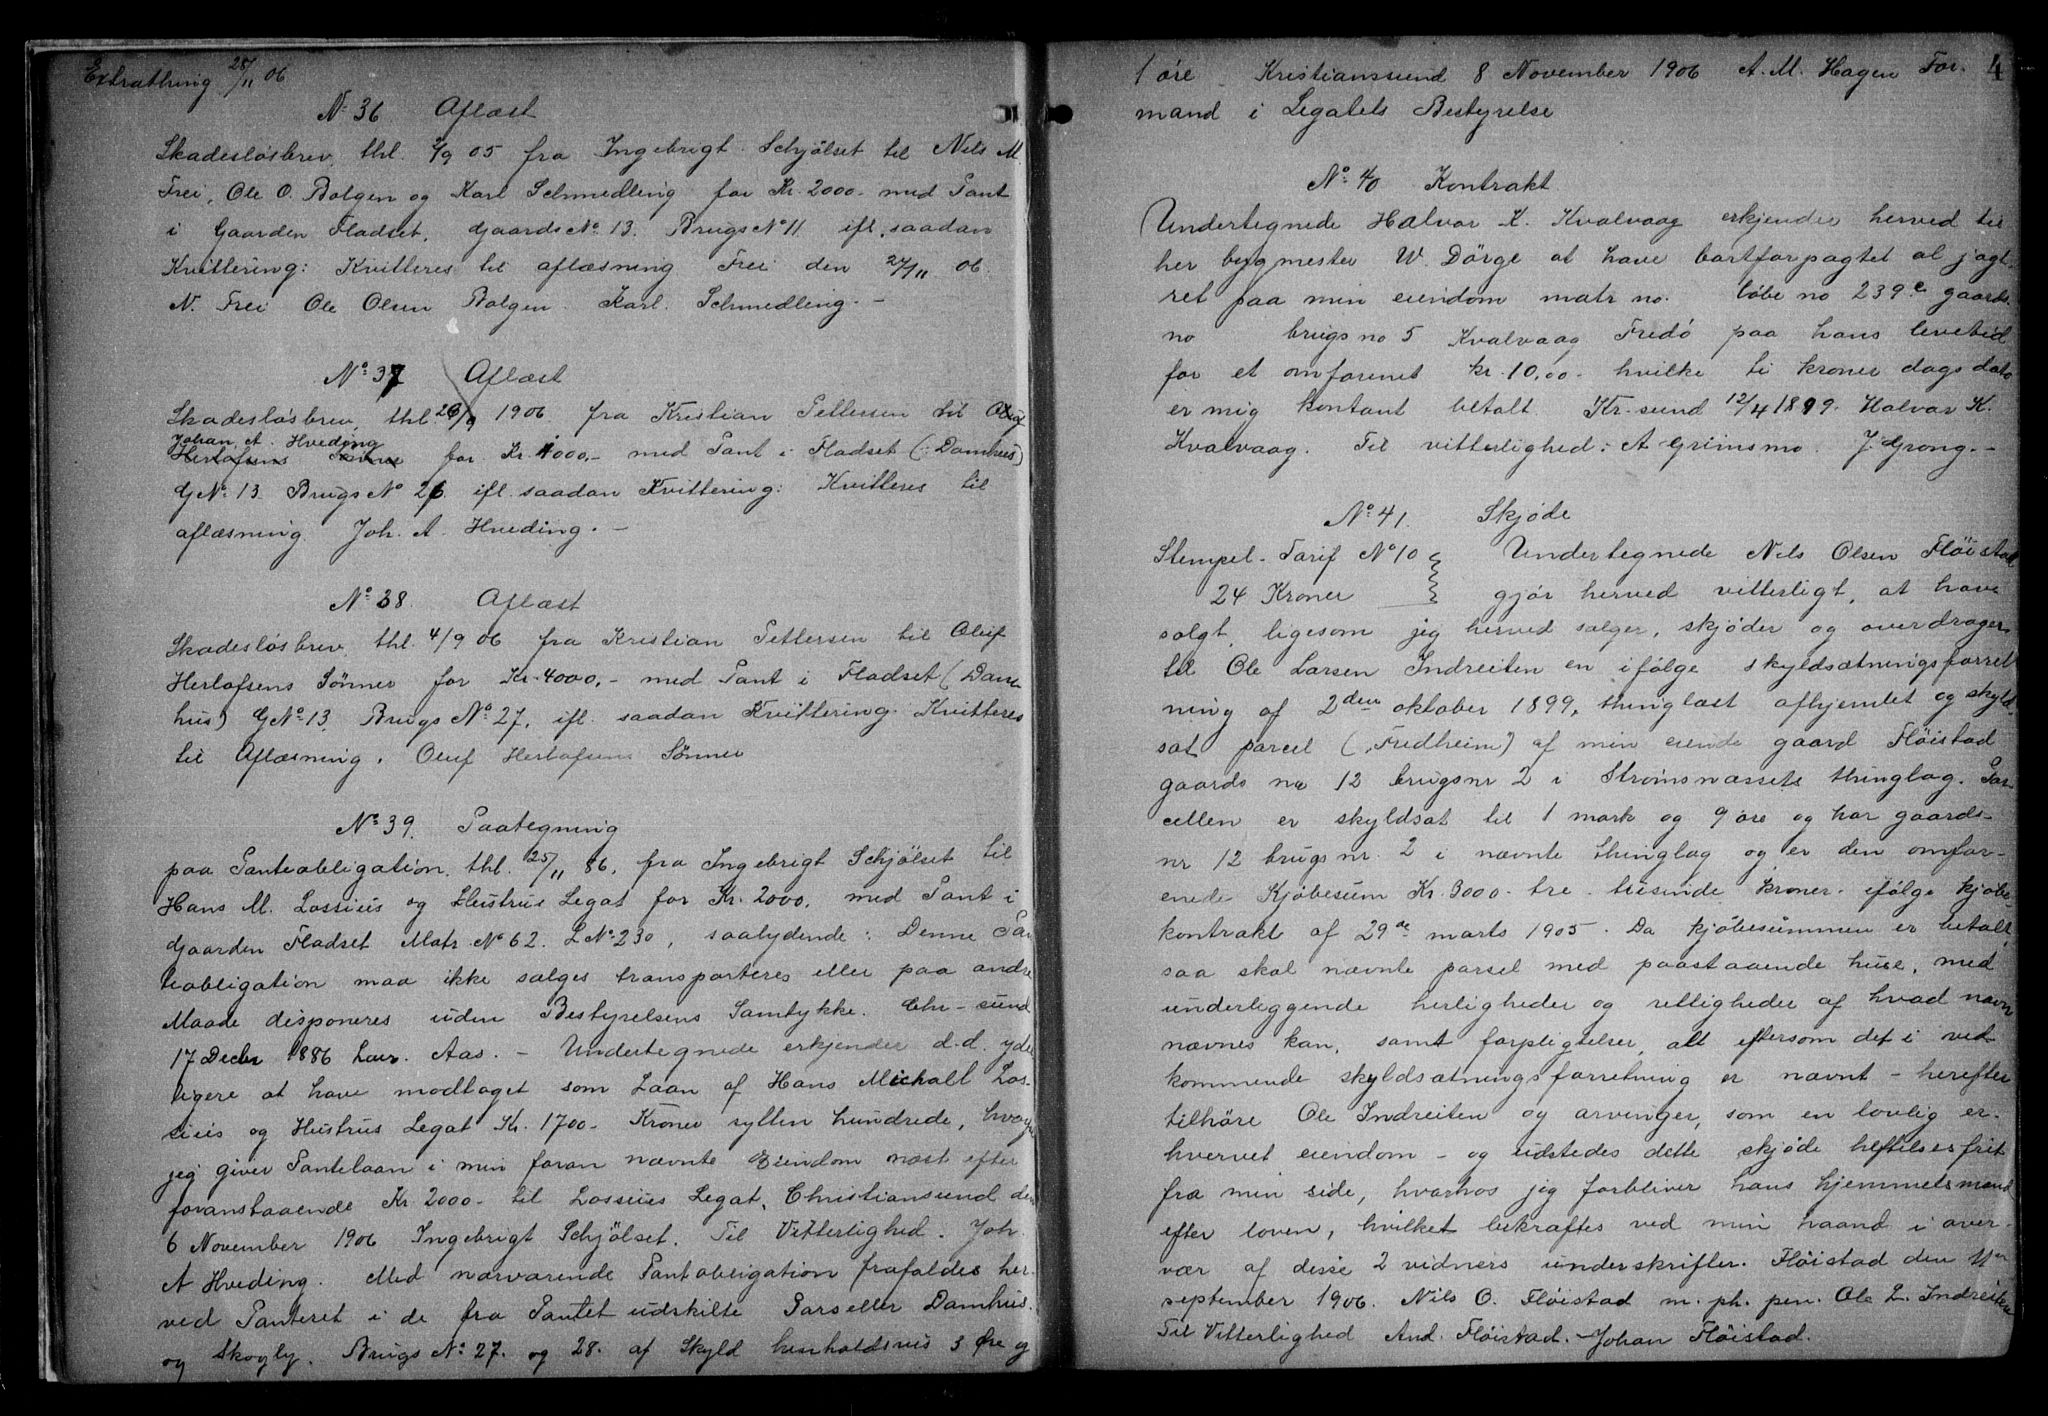 Extrathing 28/11 06
No 36 Aflæst
Skadesløsbrev, thl. 4/9 05 fra Ingebrigt Schjølset til Nils M.
Frei, Ole O. Bolgen og Karl Schmedling for Kr. 2000 - med Pant
i Gaarden Fladset, Gaards No 13. Brugs No 11 ifl. saadan
Kvittering: Kvitteres til aflæsning Frei den 27/11 06.
N. Frei Ole Olsen Bolgen. Karl Schmedling. -
No 37 Aflæst
Skadesløsbrev, thl. 1906 fra Kristian Pettersen til
Johan A. Hveding
Herlofsens Sönner for Kr. 1000,- med Pant i Fladset (: Damhus)
GNo 13 Brugs No 26. ifl. saadan Kvittering: Kvitteres til
aflæsning Joh. A. Hveding. -
No 38. Aflæst
Skadesløsbrev, thl. 4/9 06 fra Kristian Pettersen til Oluf
Herlofsens Sönner for Kr. 4000,- med Pant i Fladset (Dam-
hus) GNo 13. Brugs No 27, ifl. saadan Kvittering. Kvitteres
til Aflæsning. Oluf Herlofsens Sönner
No 39. Paategning
paa Panteobligation, thl. 25/11 86, fra Ingebrigt Schjølset til
Hans M. Lossius og Hustrus Legat for Kr. 2000, med Pant i
Gaarden Fladset Matr No 62. LNo 230, saalydende: Denne Pan
teobligation maa ikke sælges transporteres eller paa andre
Maade disponeres uden Bestyrelsens Samtykke. Chr-sund
17 Decbr 1886 Laur. Aas. - Undertegnede erkjender d.d. yder
ligere at have modtaget som Laan af Hans Michall Los-
sius og Hustrus Legat Kr. 1700 - Kroner sytten hundrede, hvorfor
jeg giver Pantelaan i min foran nævnte Eiendom næst efter
foranstaaende Kr. 2000 - til Lossius Legat, Christiansund den
6 November 1906 Ingebrigt Schjölset. Til Vitterlighed. Joh.
A Hveding. Med nærværende Pantobligation frafaldes her-
ved Panteret i de fra Pantet udskilte Parseller Damhus
og Skogly. Brugs No 27. og 28. af Skyld henholdsvis 3 Øre og
4
1 øre Kristianssund 8 November 1906 A. M. Hagen For-
mand i Legatets Bestyrelse
No 40 Kontrakt
Undertegnede Halvor K. Kvalvaag erkjender herved til
her bygmester W. Dörge at have bortforpagtet al jagt-
ret paa min eiendom matr no. løbe no 239e gaards-
no brugs no 5 Kvalvaag Fredö paa hans levetid
for et omforenet kr. 10,00 - hvilke ti kroner dags dato
er mig kontant betalt. Kr. sund 12/4 1899. Halvor K.
Kvalvaag. Til vitterlighed: A Grimsmo. J. Grong. -
No 41. Skjøde
Stempel-Tarif No 10 Undertegnede Nils Olsen Flöistad
24 Kroner gjør herved vitterligt, at have
solgt, ligesom jeg herved sælger, skjøder og overdrager
til Ole Larsen Indreiten en ifölge skyldsætningsforret
ning af 2den oktober 1899, thinglæst afhjemlet og skyld-
sat parcel („Fredheim") af min eiende gaard Flöistad
gaards no 12 brugsnr 2 i Strömsnæssets thinglag. Par-
cellen er skyldsat til 1 mark og 9 øre og har gaards-
nr 12 brugsnr. 2 i nævnte thinglag og er den omfor-
enede Kjøbesum Kr. 3000 - tre - tusinde kroner - ifölge kjøbe-
kontrakt af 29de marts 1905. Da kjøbesummen er betalt,
saa skal nævnte parsel med paastaaende huse, med
underliggende herligheder og rettigheder af hvad navn
nævnes kan, samt forpligtelser, alt eftersom det i ved-
kommende skyldsætningsforretning er nævnt - herefter
tilhöre Ole Indreiten og arvinger, som en lovlig er-
hvervet eiendom - og udstedes dette skjøde heftelsesfrit
fra min side, hvorhos jeg forbliver hans hjemmelsmand
efter loven, hvilket bekræftes ved min haand i over-
vær af disse 2 vidners underskrifter. Flöistad den 11te
september 1906. Nils O. Flöistad m. ph. pen. Ole L. Indreiten
Til Vitterlighed And. Flöistad. - Johan Flöistad.